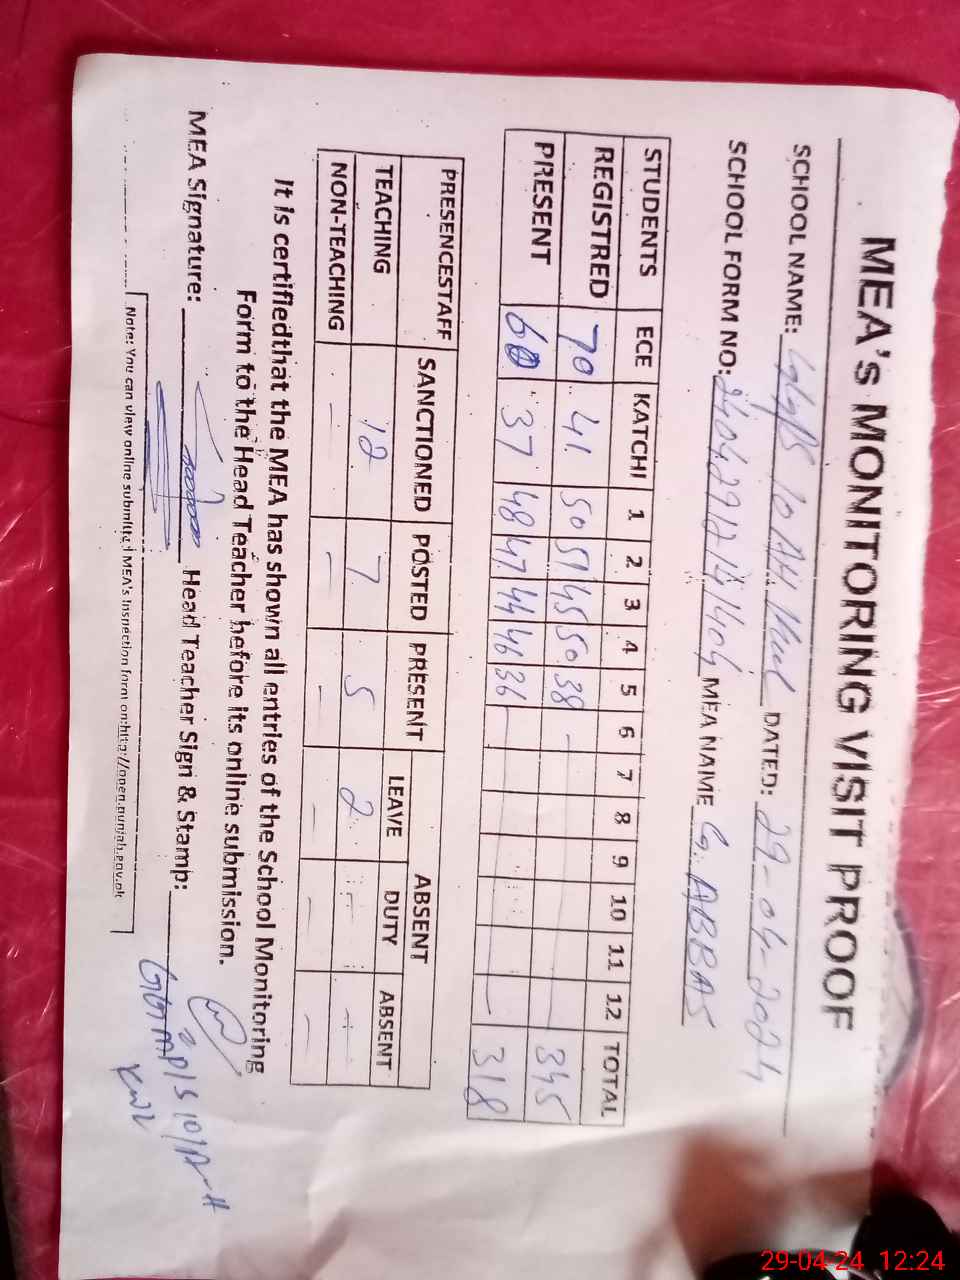 MEA's MONITORING VISIT PROOF
SCHOOL NAME: 10 AH DATED: 29-04-2024
SCHOOL FORM NO: MEA NAME G. ABBAS
STUDENTS ECE KATCHI 1 2 3 4 5 6 7 8 9 10 11 12 TOTAL
REGISTRED 70 41 50 51 45 50 38 - 345
PRESENT 60 37 48 47 44 46 36 - 318
PRESENCESTAFF SANCTIONED POSTED PRESENT ABSENT
LEAVE DUTY ABSENT
TEACHING 12 7 5 2 - -
NON-TEACHING - - - - - -
It is certifiedthat the MEA has shown all entries of the School Monitoring
Form to the Head Teacher before its online submission.
MEA Signature: Head Teacher Sign & Stamp:
10/A-H
KWL
Note: You can view online submitted MEA's Inspection form on:http://open.punjab.gov.pk
29-04-24 12:24